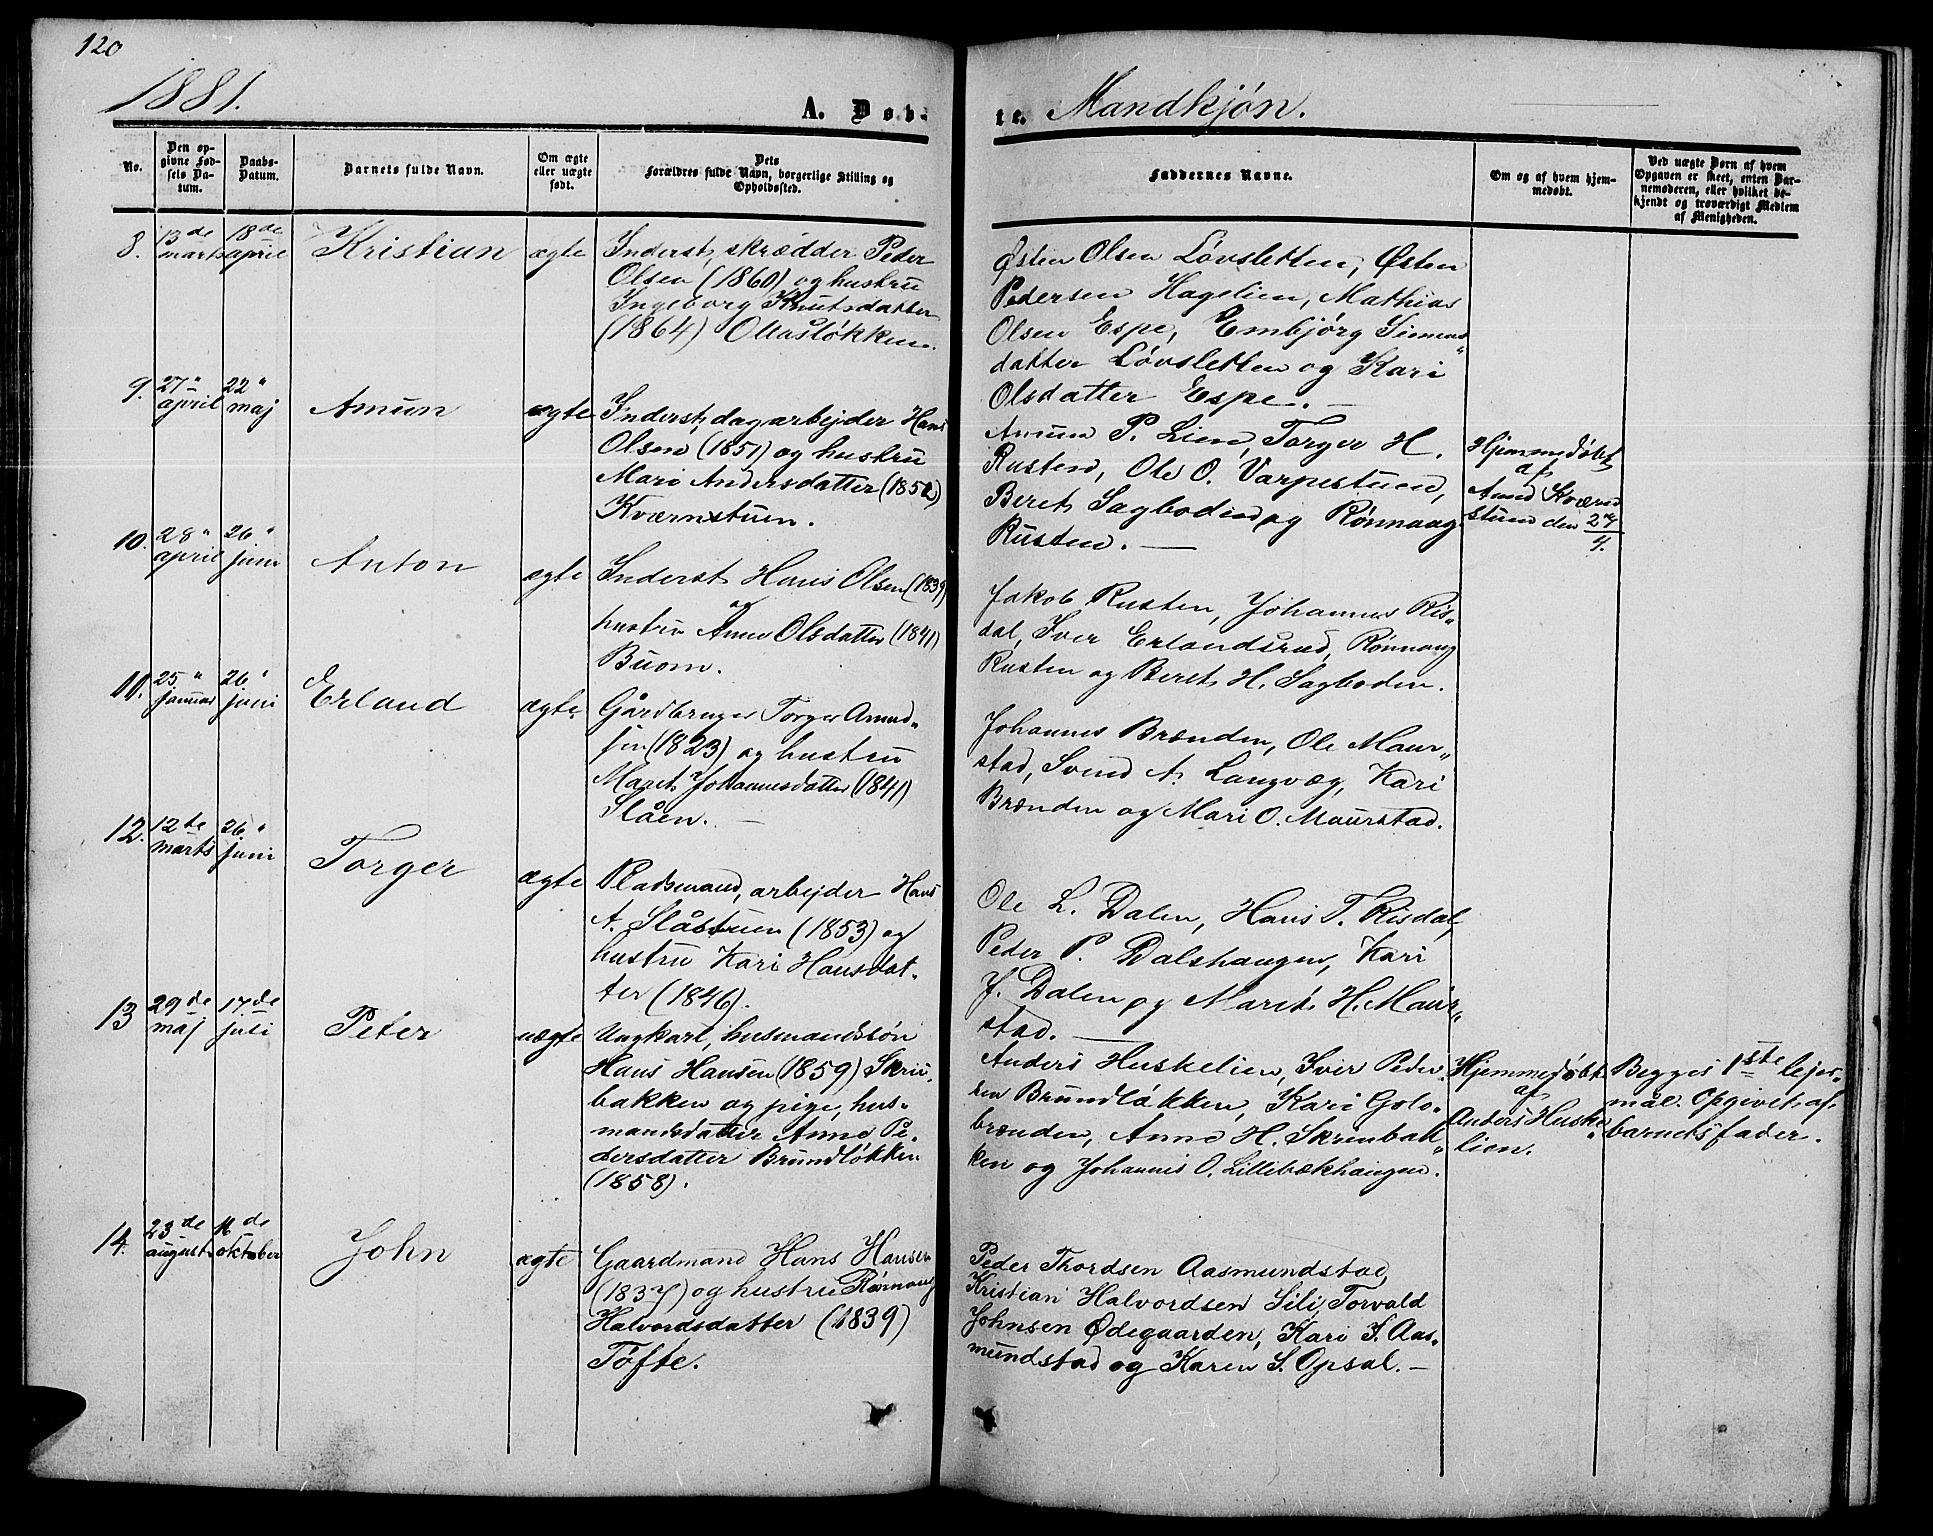 120
1881.
A. Døb-
te. Mandkjøn.
No.
Den op-
givne Fød-
sels Da-
tum.
Daabs-
Datum.
Barnets fulde Navn.
Om ægte
eller uægte
født.
Dets
Forældres fulde Navn, borgerlige Stilling og
Opholdssted.
Faddernes Navne.
Om og af hvem hjem-
medøbt.
Ved uægte Børn af hvem
Opgaven er skeet, enten Bar-
nemoderen, eller hvilket be-
kjendt og troværdigt Medlem
af Menigheden.
8.
13de
marts
18de
april
Kristian
ægte
Inderst, skrædder Peder
Olsen (1860) og hustru
Ingeborg Knutsdatter
(1864) Ottasløkken.
Østen Olsen Løvsletten, Østen
Pedersen Hagelien, Mathias
Olsen Espe, Embjørg Simens-
datter Løvsletten og Kari
Olsdatter Espe. —
9.
27"
april
22"
maj
Amun
ægte
Inderst, dagarbejder Hans
Olsen (1851) og hustru
Mari Andersdatter (1852)
Kværnstuen.
Amun P. Lien, Torger H.
Rusten, Ole O. Varpestuen,
Beret Sagboden og Rønnaug
Rusten. —
Hjemmedøbt
af
Amund Kværn-
stuen den 27/4.
10.
28"
april
26"
juni
Anton
ægte
Inderst Hans Olsen (1839)
og
hustru Anne Olsdatter (1841)
Buom.
Jakob Rusten, Johannes Ris-
dal, Iver Erlandsrud, Rønnaug
Rusten og Beret H. Sagboden.
11.
25"
januar
26"
juni
Erland
ægte
Gårdbruger Torger Amund-
sen (1823) og hustru
Marit Johannesdatter (1841)
Slåen. —
Johannes Brænden, Ole Maur-
stad, Svend A. Langvæg, Kari
Brænden og Mari O. Maurstad.
12.
12te
marts
26"
juni
Torger
ægte
Pladsmand, arbejder Hans
A. Slåstuen (1853) og
hustru Kari Hansdat-
ter (1846).
Ole L. Dalen, Hans T. Risdal,
Peder P. Dalshaugen, Kari
J. Dalen og Marit H. Maur-
stad. —
13
29de
maj
17de
juli
Peter
uægte
Ungkarl, husmandssøn
Hans Hansen (1859) Skrin-
bakken og pige, hus-
mandsdatter Anne Pe-
dersdatter Brundløkken
(1858).
Anders Huskelien, Iver Peder-
sen Brundløkken, Kari Golo-
brenden, Anne H. Skrinbak-
ken og Johannis O. Lillebækhaugen.
Hjemmedøbt
af
Anders Huske-
lien.
Begges 1ste lejer-
mål. Opgivet af
barnets fader.
14.
23de
august
16de
oktober
John
ægte
Gaardmand Hans Hansen
(1837) og hustru Rønnaug
Halvordsdatter (1839)
Tøfte.
Peder Thordsen Aasmundstad,
Kristian Halvordsen Sili, Torvald
Johnsen Ødegaarden, Kari S. Aas-
mundstad og Karen S. Opsal. —